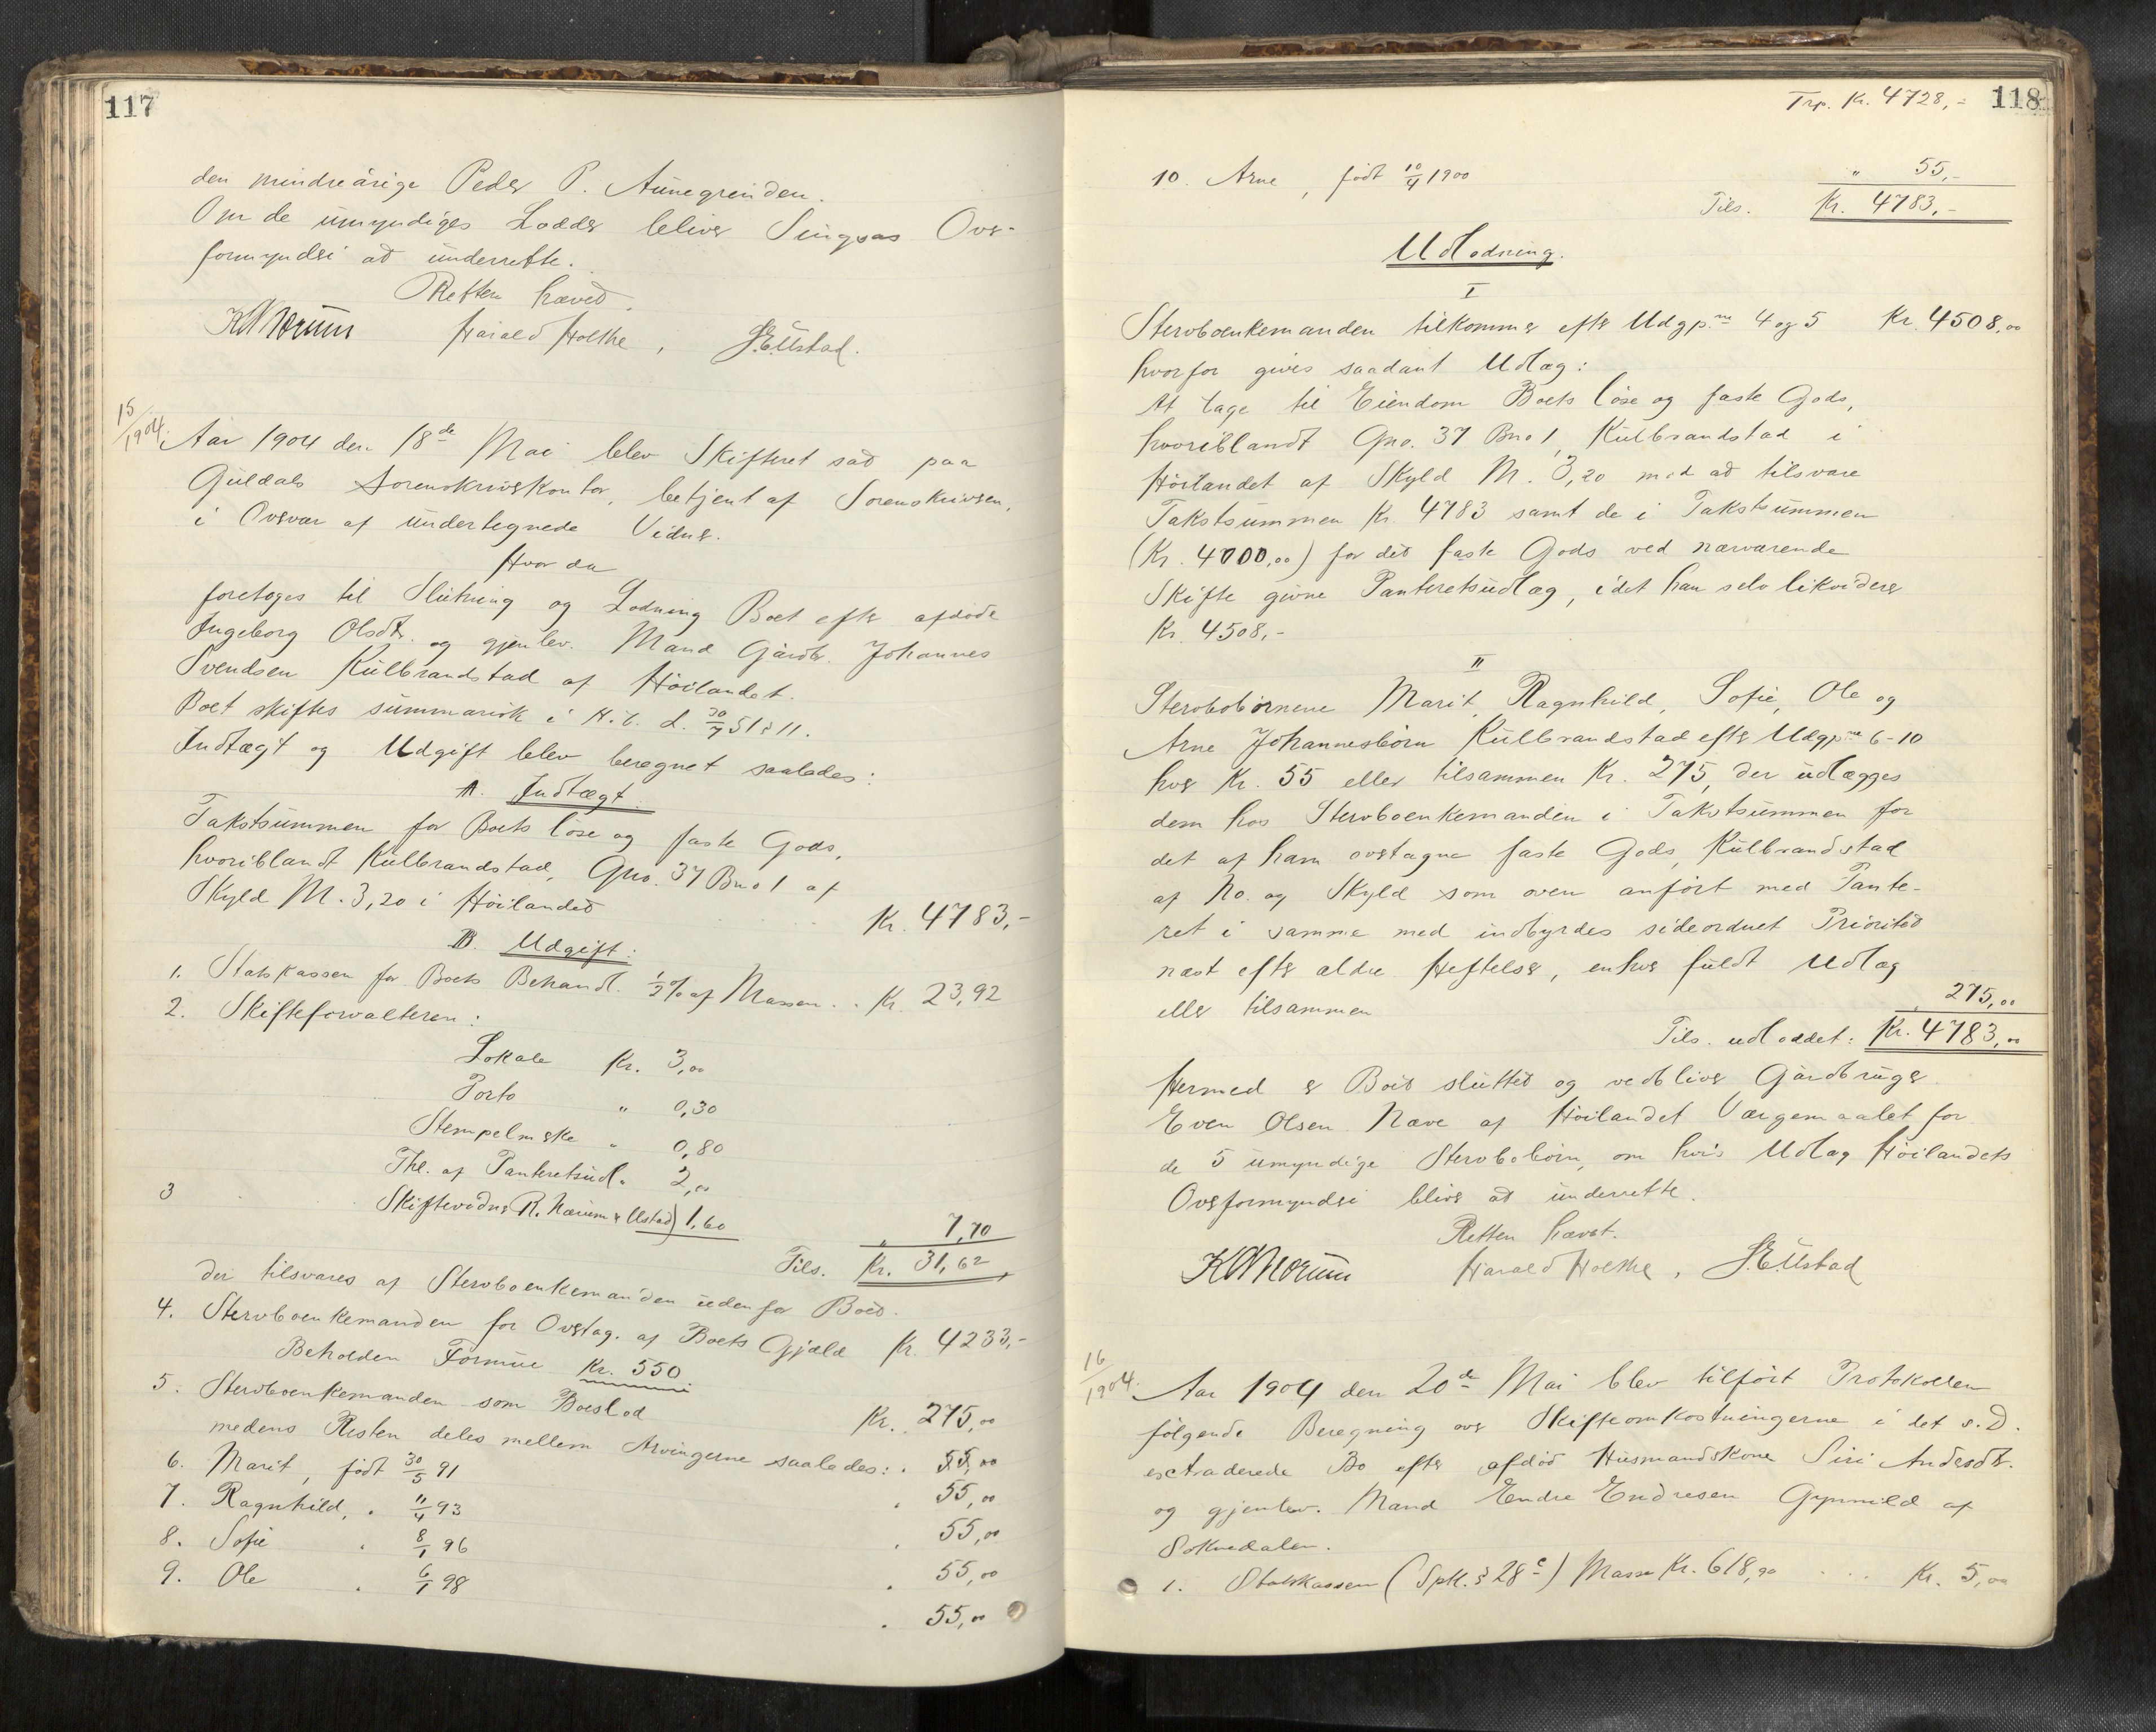 117
den mindreårige Peder P. Aunegrenden.
Om de umyndiges Lodder bliver Singsås Over-
formynderi at underrette.
Retten hævet.
KNorum Harald Holthe, SEUstad.
15/1904.
Aar 1904 den 18de Mai blev Skifteret sat paa
Guldals Sorenskriverkontor, betjent af Sorenskriveren,
i Overvær af undertegnede Vidner.
Hvor da
foretoges til Slutning og Lodning Boet efter afdøde
Ingeborg Olsdtr. og gjenlev. Mand Gårdbr. Johannes
Svendsen Kulbrandstad af Höilandet.
Boet skiftes summarisk i H. t. L. 30/7 51 § 11.
Indtægt og Udgift blev beregnet saaledes:
A. Indtægt.
Takstsummen for Boets löse og faste Gods,
hvoriblandt Kulbrandstad, Gno. 37 Bno 1 af
Skyld M. 3,20 i Höilandet Kr. 4783,-
B. Udgift:
1. Statskassen for Boets Behandl. 1/2 % af Massen . . Kr. 23,92
2. Skifteforvalteren:
Lokale Kr. 3,00
Porto " 0,30
Stempelmærke " 0,80
Thl. af Panteretsudl. " 2,00
3 Skiftevidner R. Nærum & Ustad) 1,60 " 7,70
Tils. Kr. 31,62
der tilsvares af Stervboenkemanden udenfor Boet.
4. Stervboenkemanden for Overtag. af Boets Gjæld Kr. 4233,-
Beholden Formue Kr. 550
5. Stervboenkemanden som Boeslod Kr. 275,00
medens Resten deles mellem Arvingerne saaledes:
6. Marit, född 30/5 91 . 55,00
7. Ragnhild, " 11/4 93 . 55,00
8. Sofie " 8/1 96 . 55,00
9. Ole " 6/1 98 . 55,00
. 55,00
Trp. Kr. 4728,- 118
10. Arne, född 10/4 1900 " 55,-
Tils. Kr. 4783,-
Udlodning.
I
Stervboenkemanden tilkommer efter Udgp.ne 4 og 5 Kr. 4508,00
hvorfor gives saadant Udlæg:
At tage til Eiendom Boets löse og faste Gods,
hvoriblandt Gno. 37 Bno 1, Kulbrandstad i
Höilandet af Skyld M. 3,20 mod at tilsvare
Takstsummen Kr. 4783 samt de i Takstsummen
(Kr. 4000,00) for det faste Gods ved nærværende
Skifte givne Panteretsudlæg, idet han selv likviderer
Kr. 4508,-
II
Stervbobörnene Marit, Ragnhild, Sofie, Ole og
Arne Johannesbörn Kulbrandstad efter Udgp.ne 6-10
hver Kr. 55 eller tilsammen Kr. 275, der udlægges
dem hos Stervboenkemanden i Takstsummen for
det af ham overtagne faste Gods, Kulbrandstad
af No. og Skyld som oven anfört med Pante-
ret i samme med indbyrdes sideordnet Prioritet
næst efter ældre Heftelser, enhver fuldt Udlæg
eller tilsammen " 275,00
Tils. udloddet: Kr. 4783,00
Hermed er Boet sluttet og vedbliver Gårdbruger
Even Olsen Næve af Höilandet Værgemaalet for
de 5 umyndige Stervbobörn, om hvis Udlæg Höilandets
Overformynderi bliver at underrette.
Retten hævet.
KNorum Harald Holthe, SEUstad
16/1904.
Aar 1904 den 20de Mai blev tilfört Protokollen
fölgende Beregning over Skifteomkostningerne i det s. D.
extraderede Bo efter afdöd Husmandskone Siri Andersdtr.
og gjenlev. Mand Endre Endresen Gynnild af
Soknedalen.
1. Statskassen (Spl. § 28 c) Masse Kr. 618,90 . . . Kr. 5,00